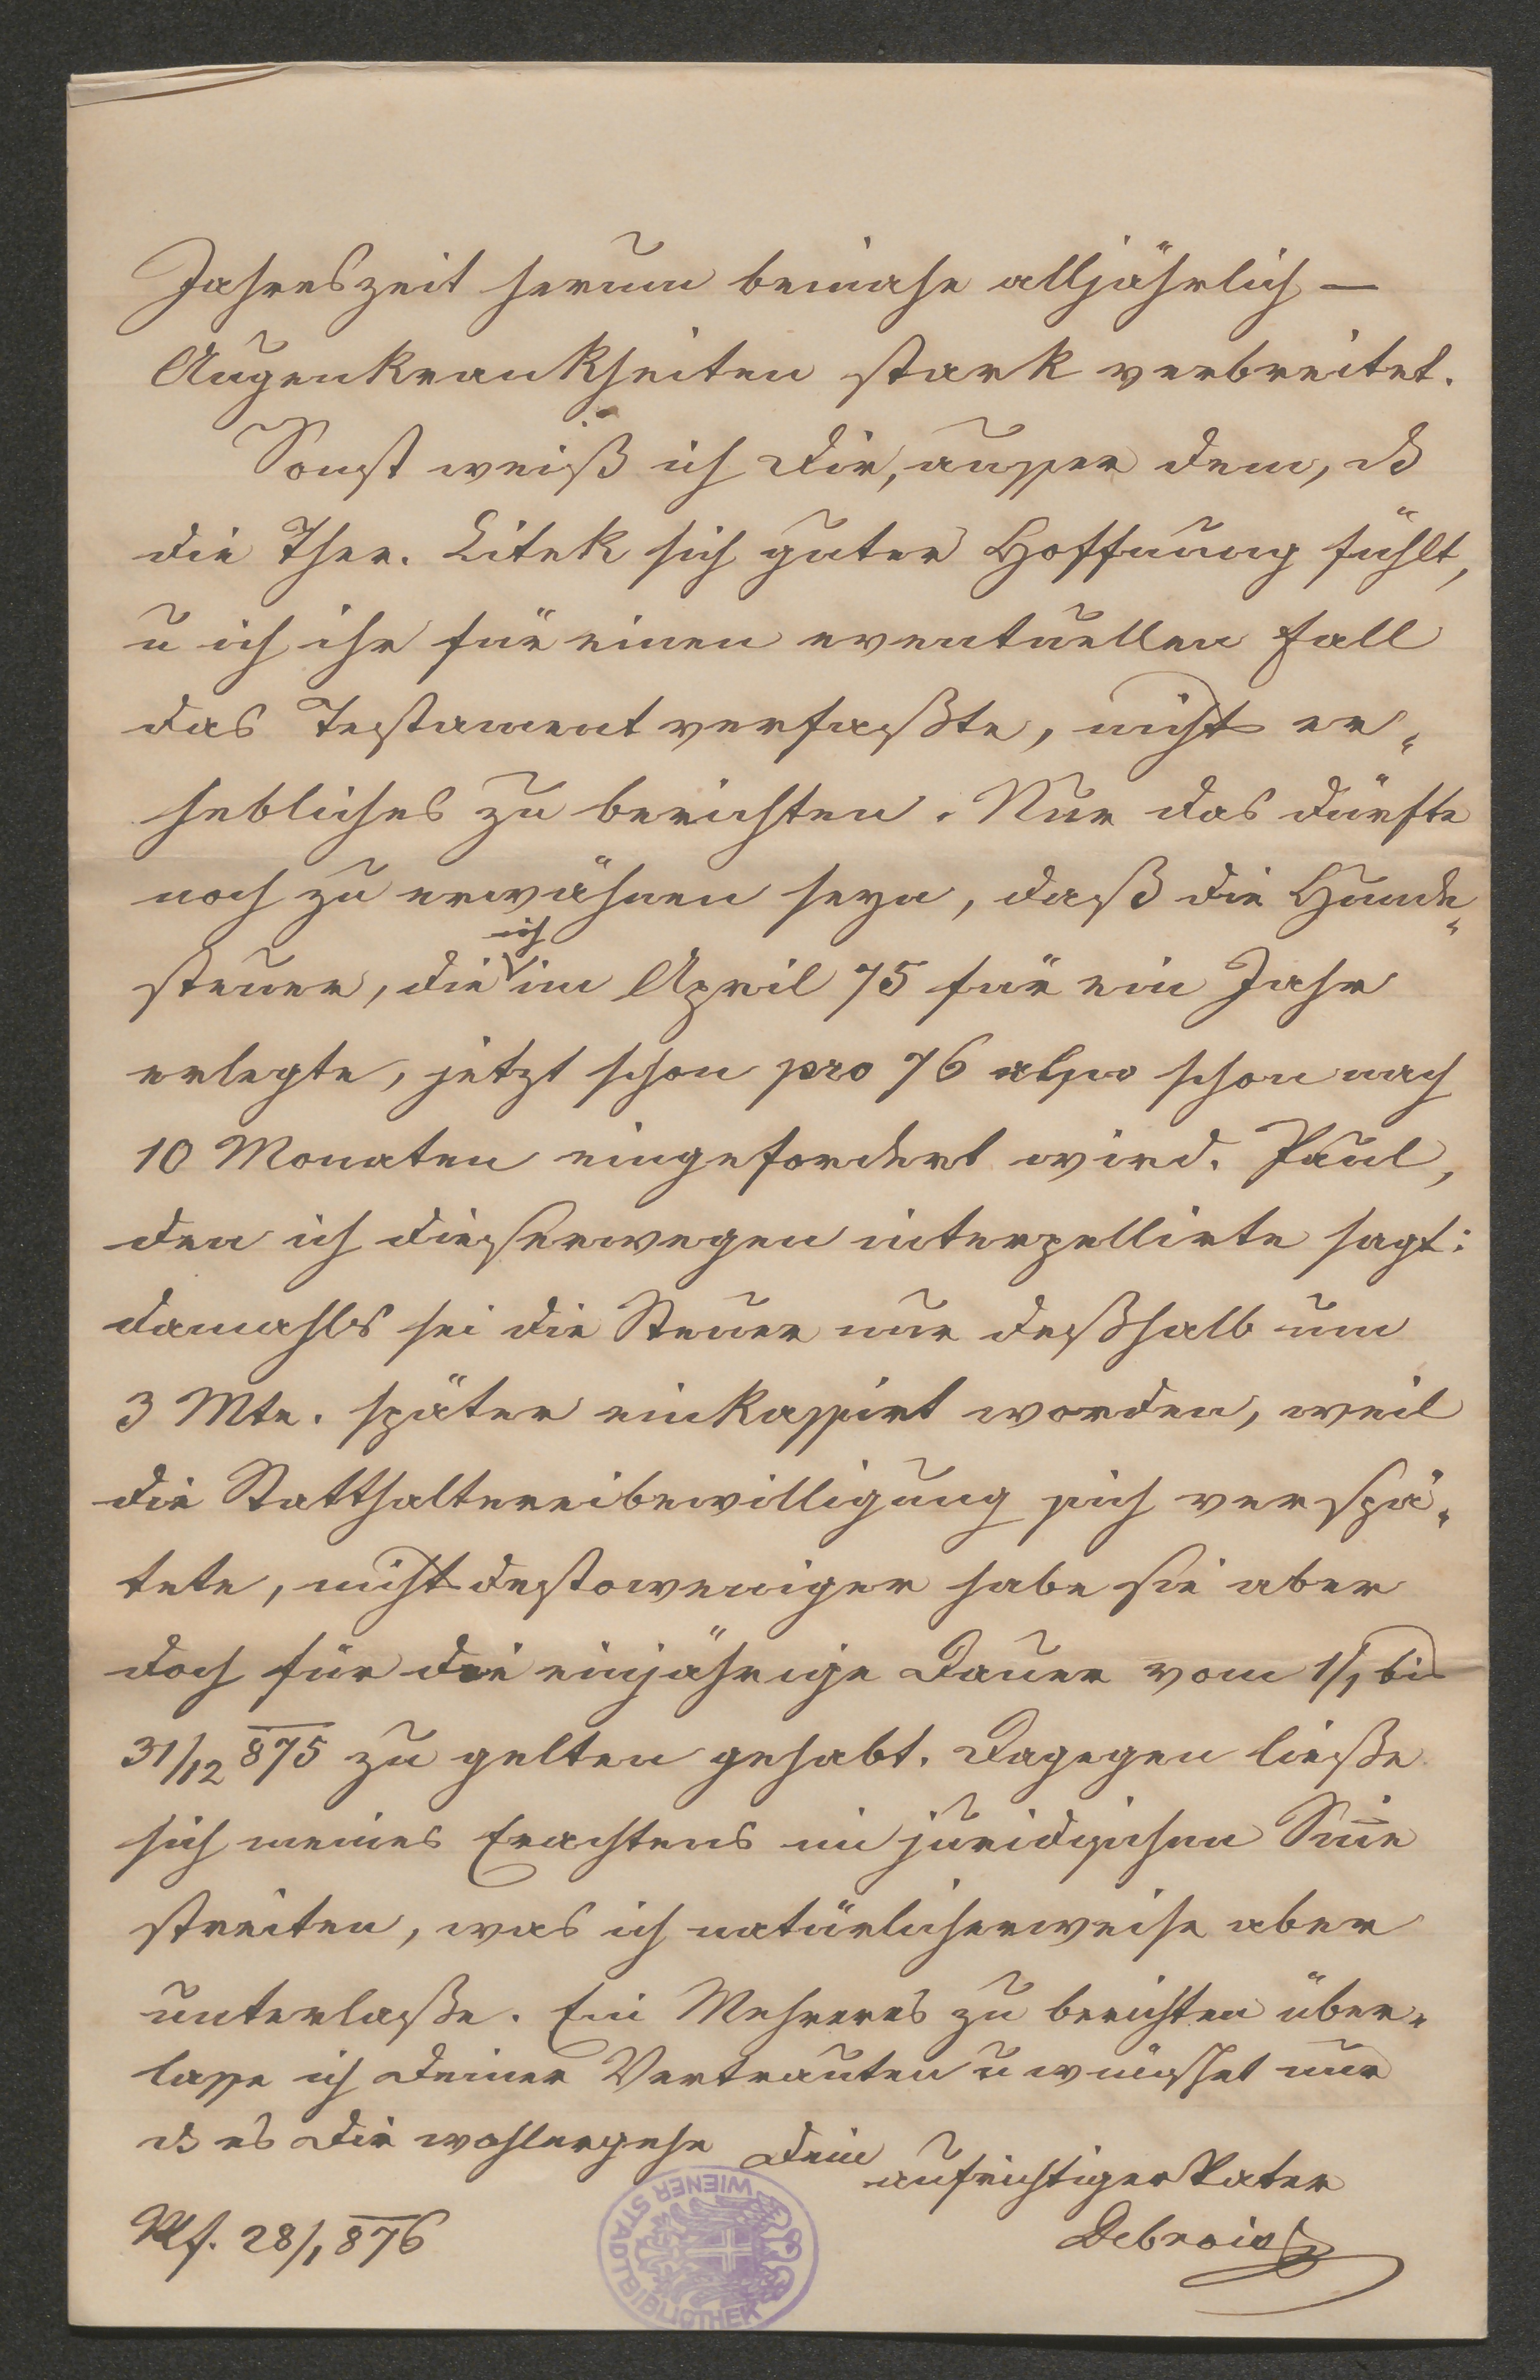 Jahreszeit herum beinahe alljährlich –
Augenkrankheiten stark verbreitet.
Sonst weiß ich Dir, ausser dem, ds
die Ther. Litek sich guter Hoffnung fühlt,
u ich ihr für einen eventuellen Fall
das Testament verfaßte, nicht er„
hebliches zu berichten. Nur das dürfte
noch zu erwähnen seyn, daß die Hunde„
ich
steuer, die im April 75 für ein Jahr
erlegte, jetzt schon pro 76 also schon nach
10 Monaten eingefordert wird. Paul,
den ich dieserwegen interpellirte sagt:
damahls sei die Steuer nur deßhalb um
3 Mte. später einkassirt worden, weil
die Statthaltereibewilligung sich verspä„
tete, nichtdestoweniger habe sie aber
doch für die einjährige Dauer vom 1/1 bis
31/12 875 zu gelten gehabt. Dagegen ließe
sich meines Erachtens im juridischen Sinne
streiten, was ich natürlicherweise aber
unterlaße. Ein Mehreres zu berichten über„
lasse ich Deiner Vertrauten u wünschet nur
ds es Dir wohlergehe Dein
aufrichtiger Vater
Debrois
28/1 876
WIENER STADTBIBLIOTHEK